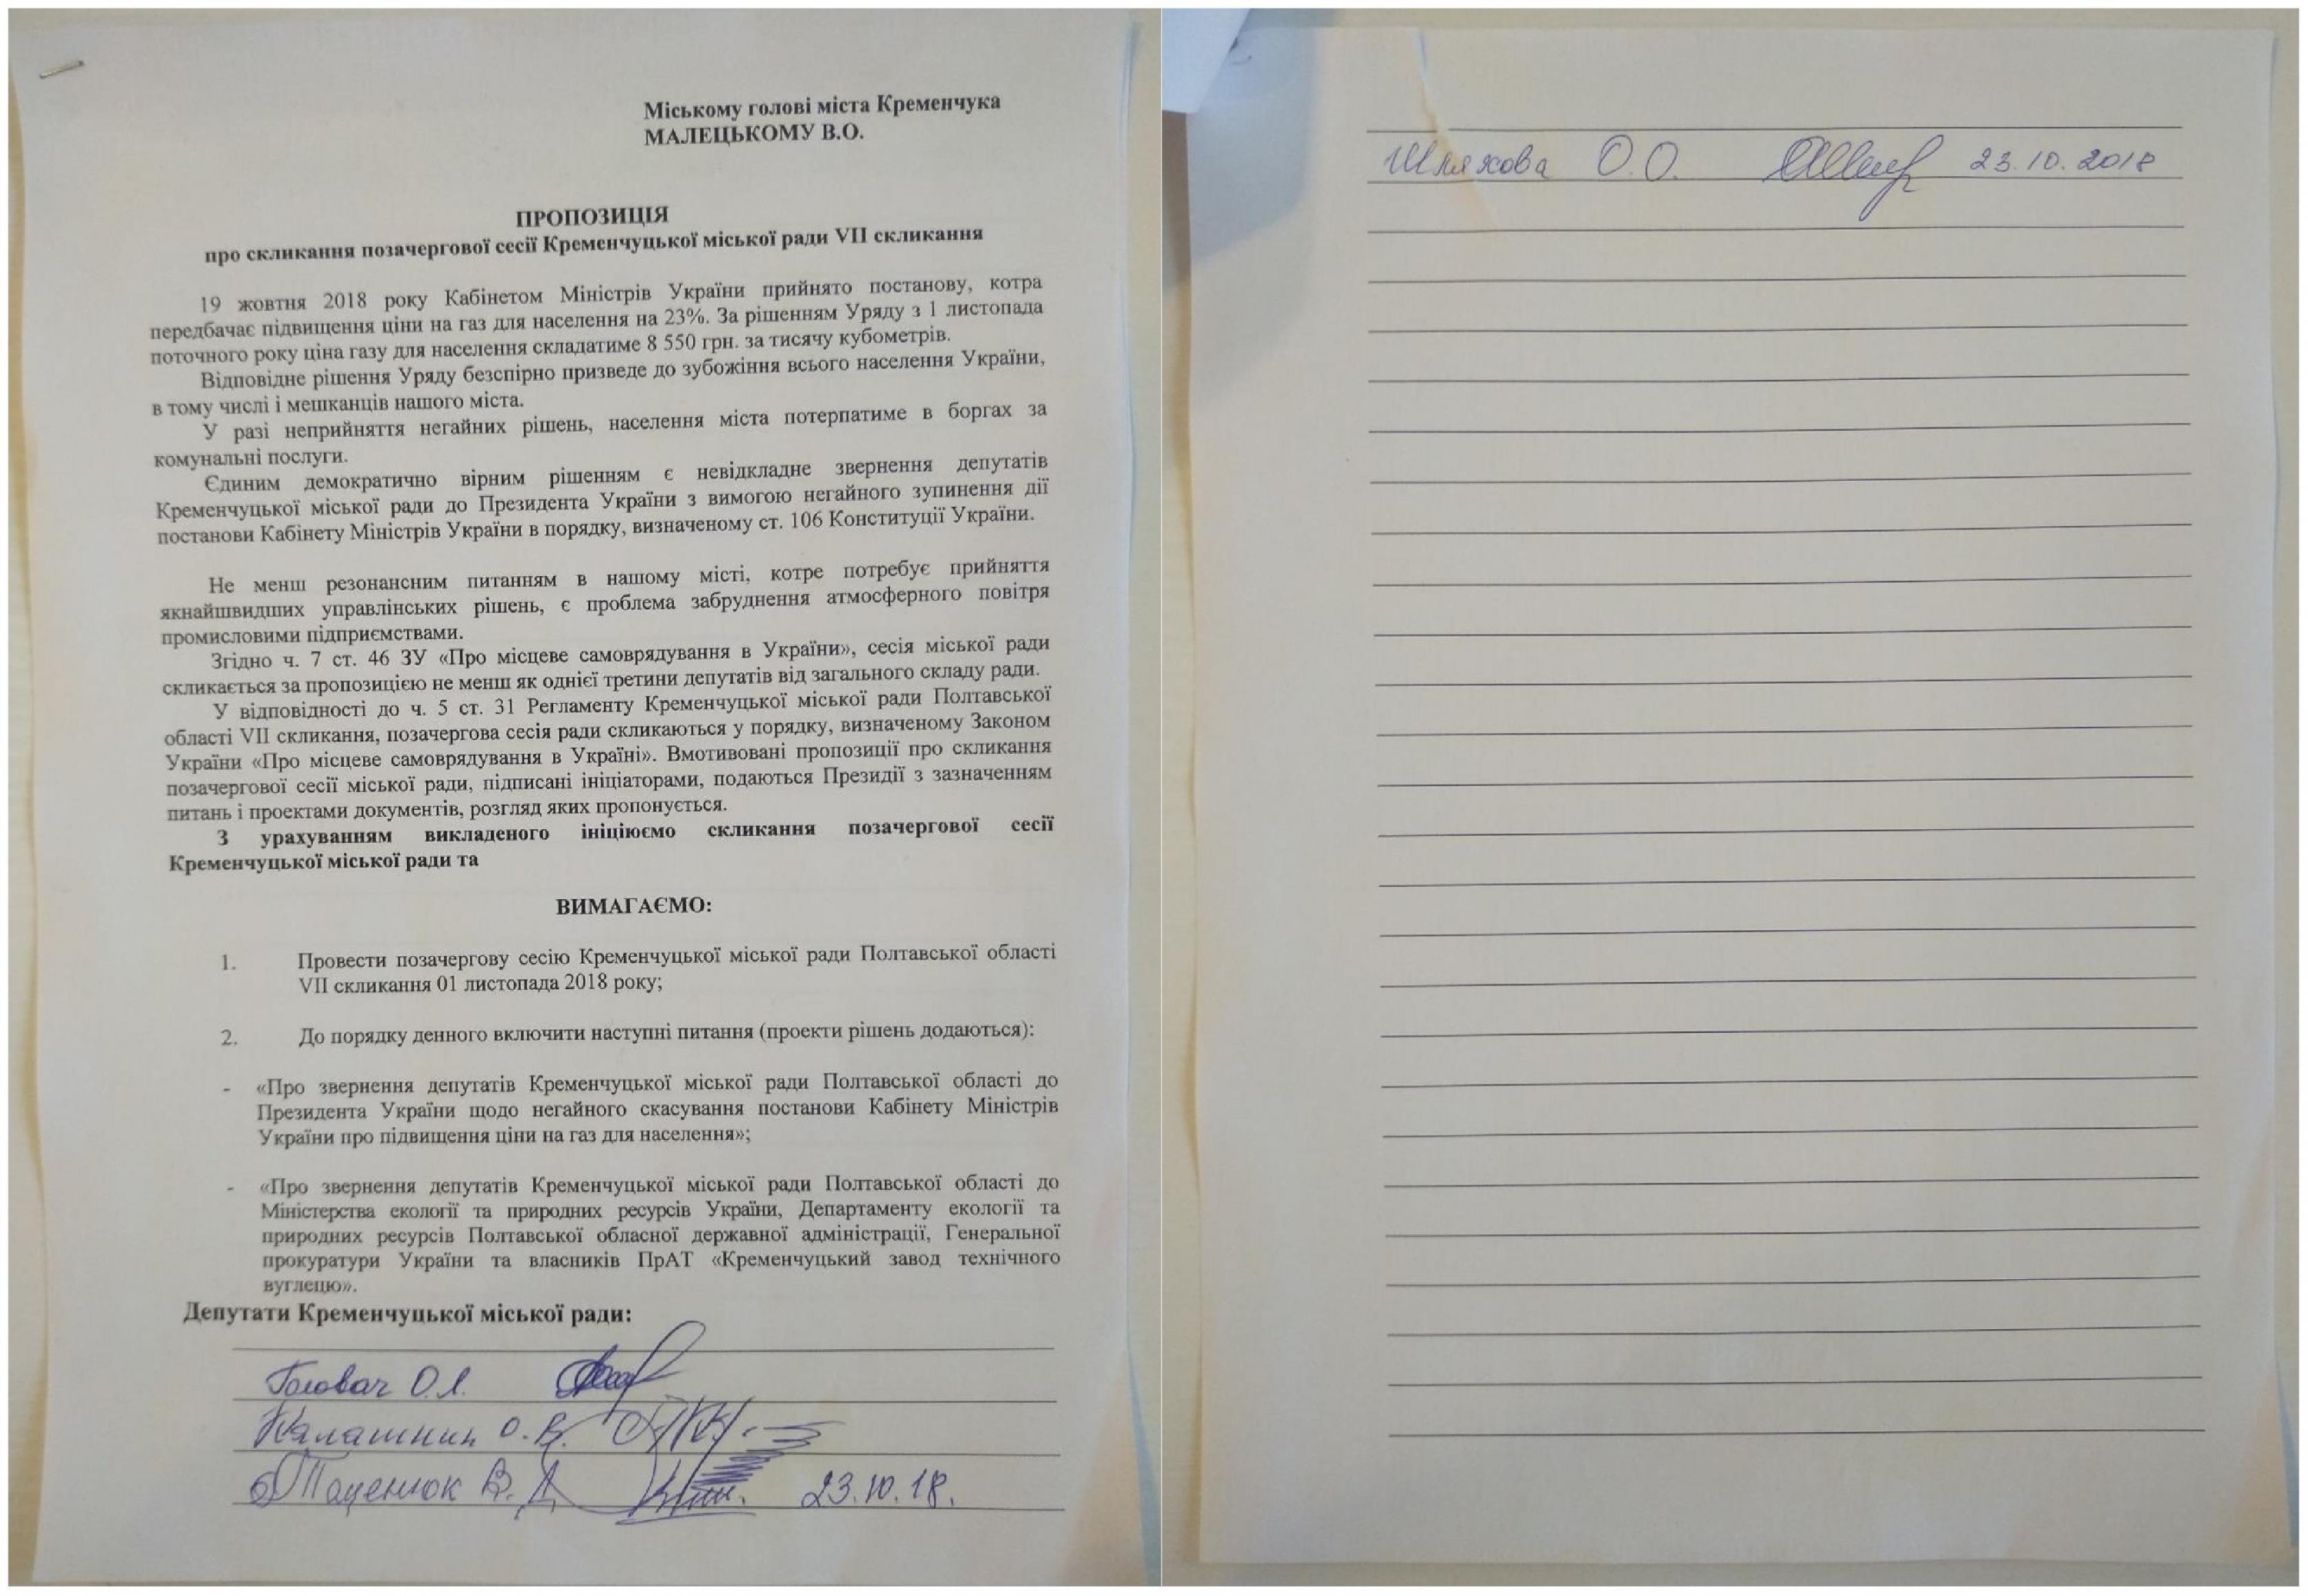 Міському голові міста Кременчука
МАЛЕЦЬКОМУ В.О.
ПРОПОЗИЦІЯ
про скликання позачергової сесії Кременчуцької міської ради VII скликання
19 жовтня 2018 року Кабінетом Міністрів України прийнято постанову, котра
передбачає підвищення ціни на газ для населення на 23%. За рішенням Уряду з 1 листопада
поточного року ціна газу для населення складатиме 8 550 грн. за тисячу кубометрів.
Відповідне рішення Уряду безспірно призведе до зубожіння всього населення України,
в тому числі і мешканців нашого міста.
У разі неприйняття негайних рішень, населення міста потерпатиме в боргах за
комунальні послуги.
Єдиним демократично вірним рішенням є невідкладне звернення депутатів
Кременчуцької міської ради до Президента України з вимогою негайного зупинення дії
постанови Кабінету Міністрів України в порядку, визначеному ст. 106 Конституції України.
Не менш резонансним питанням в нашому місті, котре потребує прийняття
якнайшвидших управлінських рішень, є проблема забруднення атмосферного повітря
промисловими підприємствами.
Згідно ч. 7 ст. 46 ЗУ «Про місцеве самоврядування в України», сесія міської ради
скликається за пропозицією не менш як однієї третини депутатів від загального складу ради.
У відповідності до ч. 5 ст. 31 Регламенту Кременчуцької міської ради Полтавської
області VII скликання, позачергова сесія ради скликаються у порядку, визначеному Законом
України «Про місцеве самоврядування в Україні». Вмотивовані пропозиції про скликання
позачергової сесії міської ради, підписані ініціаторами, подаються Президії з зазначенням
питань і проектами документів, розгляд яких пропонується.
З урахуванням викладеного ініціюємо скликання позачергової сесії
Кременчуцької міської ради та
ВИМАГАЄМО:
1. Провести позачергову сесію Кременчуцької міської ради Полтавської області
VII скликання 01 листопада 2018 року;
2. До порядку денного включити наступні питання (проекти рішень додаються):
- «Про звернення депутатів Кременчуцької міської ради Полтавської області до
Президента України щодо негайного скасування постанови Кабінету Міністрів
України про підвищення ціни на газ для населення»;
- «Про звернення депутатів Кременчуцької міської ради Полтавської області до
Міністерства екології та природних ресурсів України, Департаменту екології та
природних ресурсів Полтавської обласної державної адміністрації, Генеральної
прокуратури України та власників ПрАТ «Кременчуцький завод технічного
вуглецю».
Депутати Кременчуцької міської ради:
Головач О.Л.
Калашник О.В.
Таценюк В.Д. 23.10.18.
Шляхова О.О. 23.10.2018